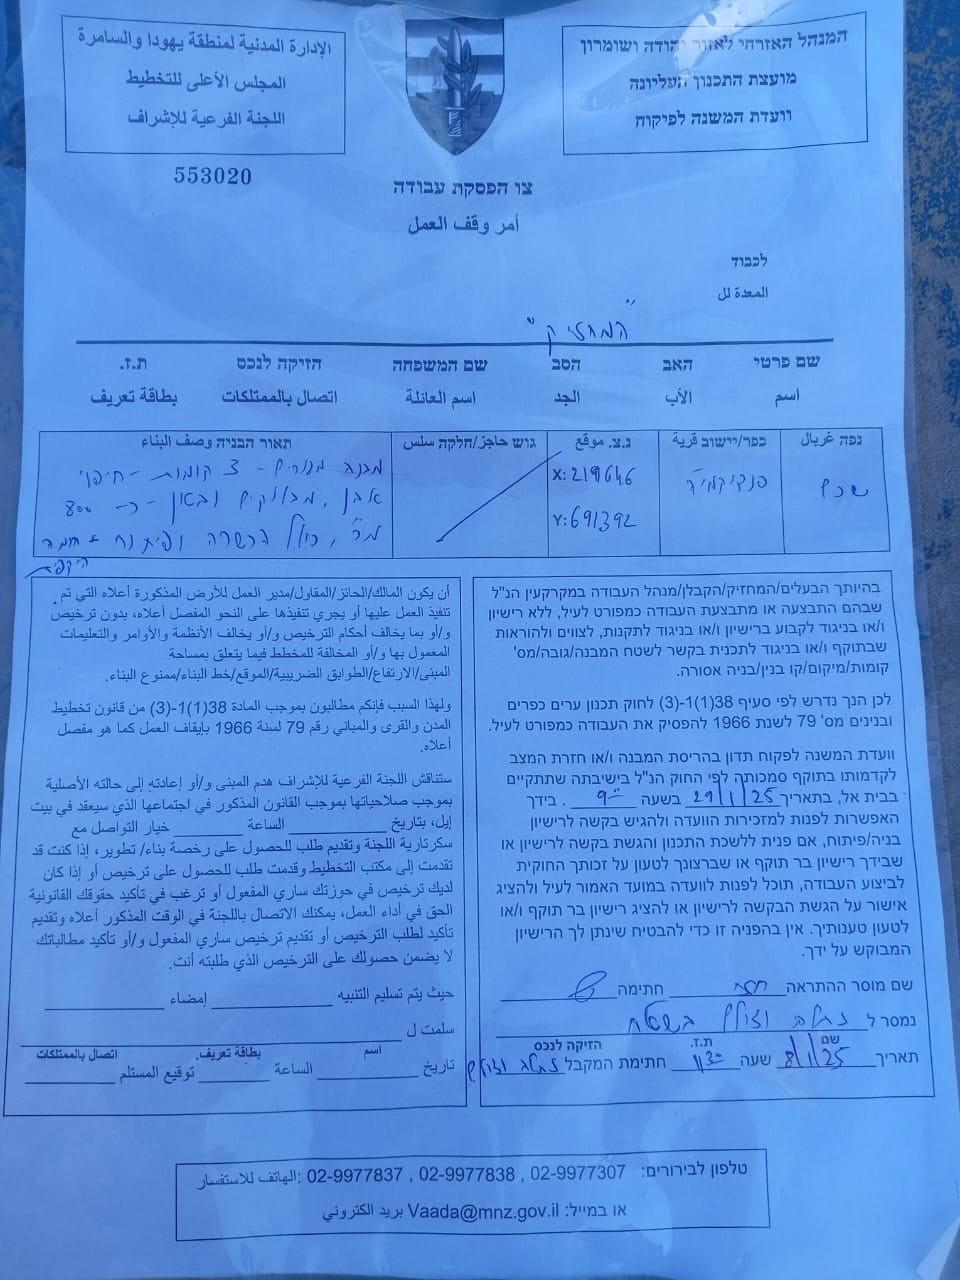 המנהל האזרחי לאזור יהודה ושומרון
מועצת התכנון העליונה
וועדת המשנה לפיקוח
الإدارة المدنية لمنطقة يهودا والسامرة
المجلس الأعلى للتخطيط
اللجنة الفرعية للإشراف
553020
צו הפסקת עבודה
أمر وقف العمل
לכבוד
المعدة لل
"המחזיק"
שם פרטי האב הסב שם המשפחה הזיקה לנכס ת.ז.
اسم الأب الجد اسم العائلة اتصال بالممتلكات بطاقة تعريف
נפה غربال כפר/יישוב قرية נ.צ. موقع גוש حاجز/חלקה سلس תאור הבניה وصف البناء
שכם
X: 219646
Y: 691392
מבנה מגורים - 3 קומות - חיפוי
אבן, מבלוקים ובטון - כ- 800
מ"ר, כולל הכשרה ופיתוח + חומה
היקפית
בהיותך הבעלים/המחזיק/הקבלן/מנהל העבודה במקרקעין הנ"ל
שבהם התבצעה או מתבצעת העבודה כמפורט לעיל, ללא רישיון
ו/או בניגוד לקבוע ברישיון ו/או בניגוד לתקנות, לצווים ולהוראות
שבתוקף ו/או בניגוד לתכנית בקשר לשטח המבנה/גובה/מס'
קומות/מיקום/קו בנין/בניה אסורה.
לכן הנך נדרש לפי סעיף 38(1)(1-3) לחוק תכנון ערים כפרים
ובנינים מס' 79 לשנת 1966 להפסיק את העבודה כמפורט לעיל.
וועדת המשנה לפקוח תדון בהריסת המבנה ו/או חזרת המצב
לקדמותו בתוקף סמכותה לפי החוק הנ"ל בישיבתה שתתקיים
בבית אל, בתאריך 29/1/25 בשעה 9:00. בידך
האפשרות לפנות למזכירות הוועדה ולהגיש בקשה לרישיון
בניה/פיתוח, אם פנית ללשכת התכנון והגשת בקשה לרישיון או
שבידך רישיון בר תוקף או שברצונך לטעון על זכותך החוקית
לביצוע העבודה, תוכל לפנות לוועדה במועד האמור לעיל ולהציג
אישור על הגשת הבקשה לרישיון או להציג רישיון בר תוקף ו/או
לטעון טענותיך. אין בהפניה זו כדי להבטיח שינתן לך הרישיון
המבוקש על ידך.
שם מוסר ההתראה חתימה
נמסר ל בשטח
שם ת.ז. הזיקה לנכס
תאריך 8/1/25 שעה 11:30 חתימת המקבל
أن يكون المالك/الحائز/المقاول/مدير العمل للأرض المذكورة أعلاه التي تم
تنفيذ العمل عليها أو يجري تنفيذها على النحو المفصل أعلاه، بدون ترخيص
و/أو بما يخالف أحكام الترخيص و/أو يخالف الأنظمة والأوامر والتعليمات
المعمول بها و/أو المخالفة للمخطط فيما يتعلق بمساحة
المبنى/الارتفاع/الطوابق الضريبية/الموقع/خط البناء/ممنوع البناء.
ولهذا السبب فإنكم مطالبون بموجب المادة 38(1)(1-3) من قانون تخطيط
المدن والقرى والمباني رقم 79 لسنة 1966 بإيقاف العمل كما هو مفصل
أعلاه.
ستناقش اللجنة الفرعية للإشراف هدم المبنى و/أو إعادته إلى حالته الأصلية
بموجب صلاحياتها بموجب القانون المذكور في اجتماعها الذي سيعقد في بيت
إيل، بتاريخ الساعة خيار التواصل مع
سكرتارية اللجنة وتقديم طلب للحصول على رخصة بناء/ تطوير، إذا كنت قد
تقدمت إلى مكتب التخطيط وقدمت طلب للحصول على ترخيص أو إذا كان
لديك ترخيص في حوزتك ساري المفعول أو ترغب في تأكيد حقوقك القانونية
الحق في أداء العمل، يمكنك الاتصال باللجنة في الوقت المذكور أعلاه وتقديم
تأكيد لطلب الترخيص أو تقديم ترخيص ساري المفعول و/أو تأكيد مطالباتك
لا يضمن حصولك على الترخيص الذي طلبته أنت.
حيث يتم تسليم التنبيه إمضاء
سلمت ل
اسم بطاقة تعريف. اتصال بالممتلكات
تاريخ الساعة توقيع المستلم
טלפון לבירורים: 02-9977307 , 02-9977838 , 02-9977837 :الهاتف للاستفسار
או במייל: Vaada@mnz.gov.il بريد الكتروني